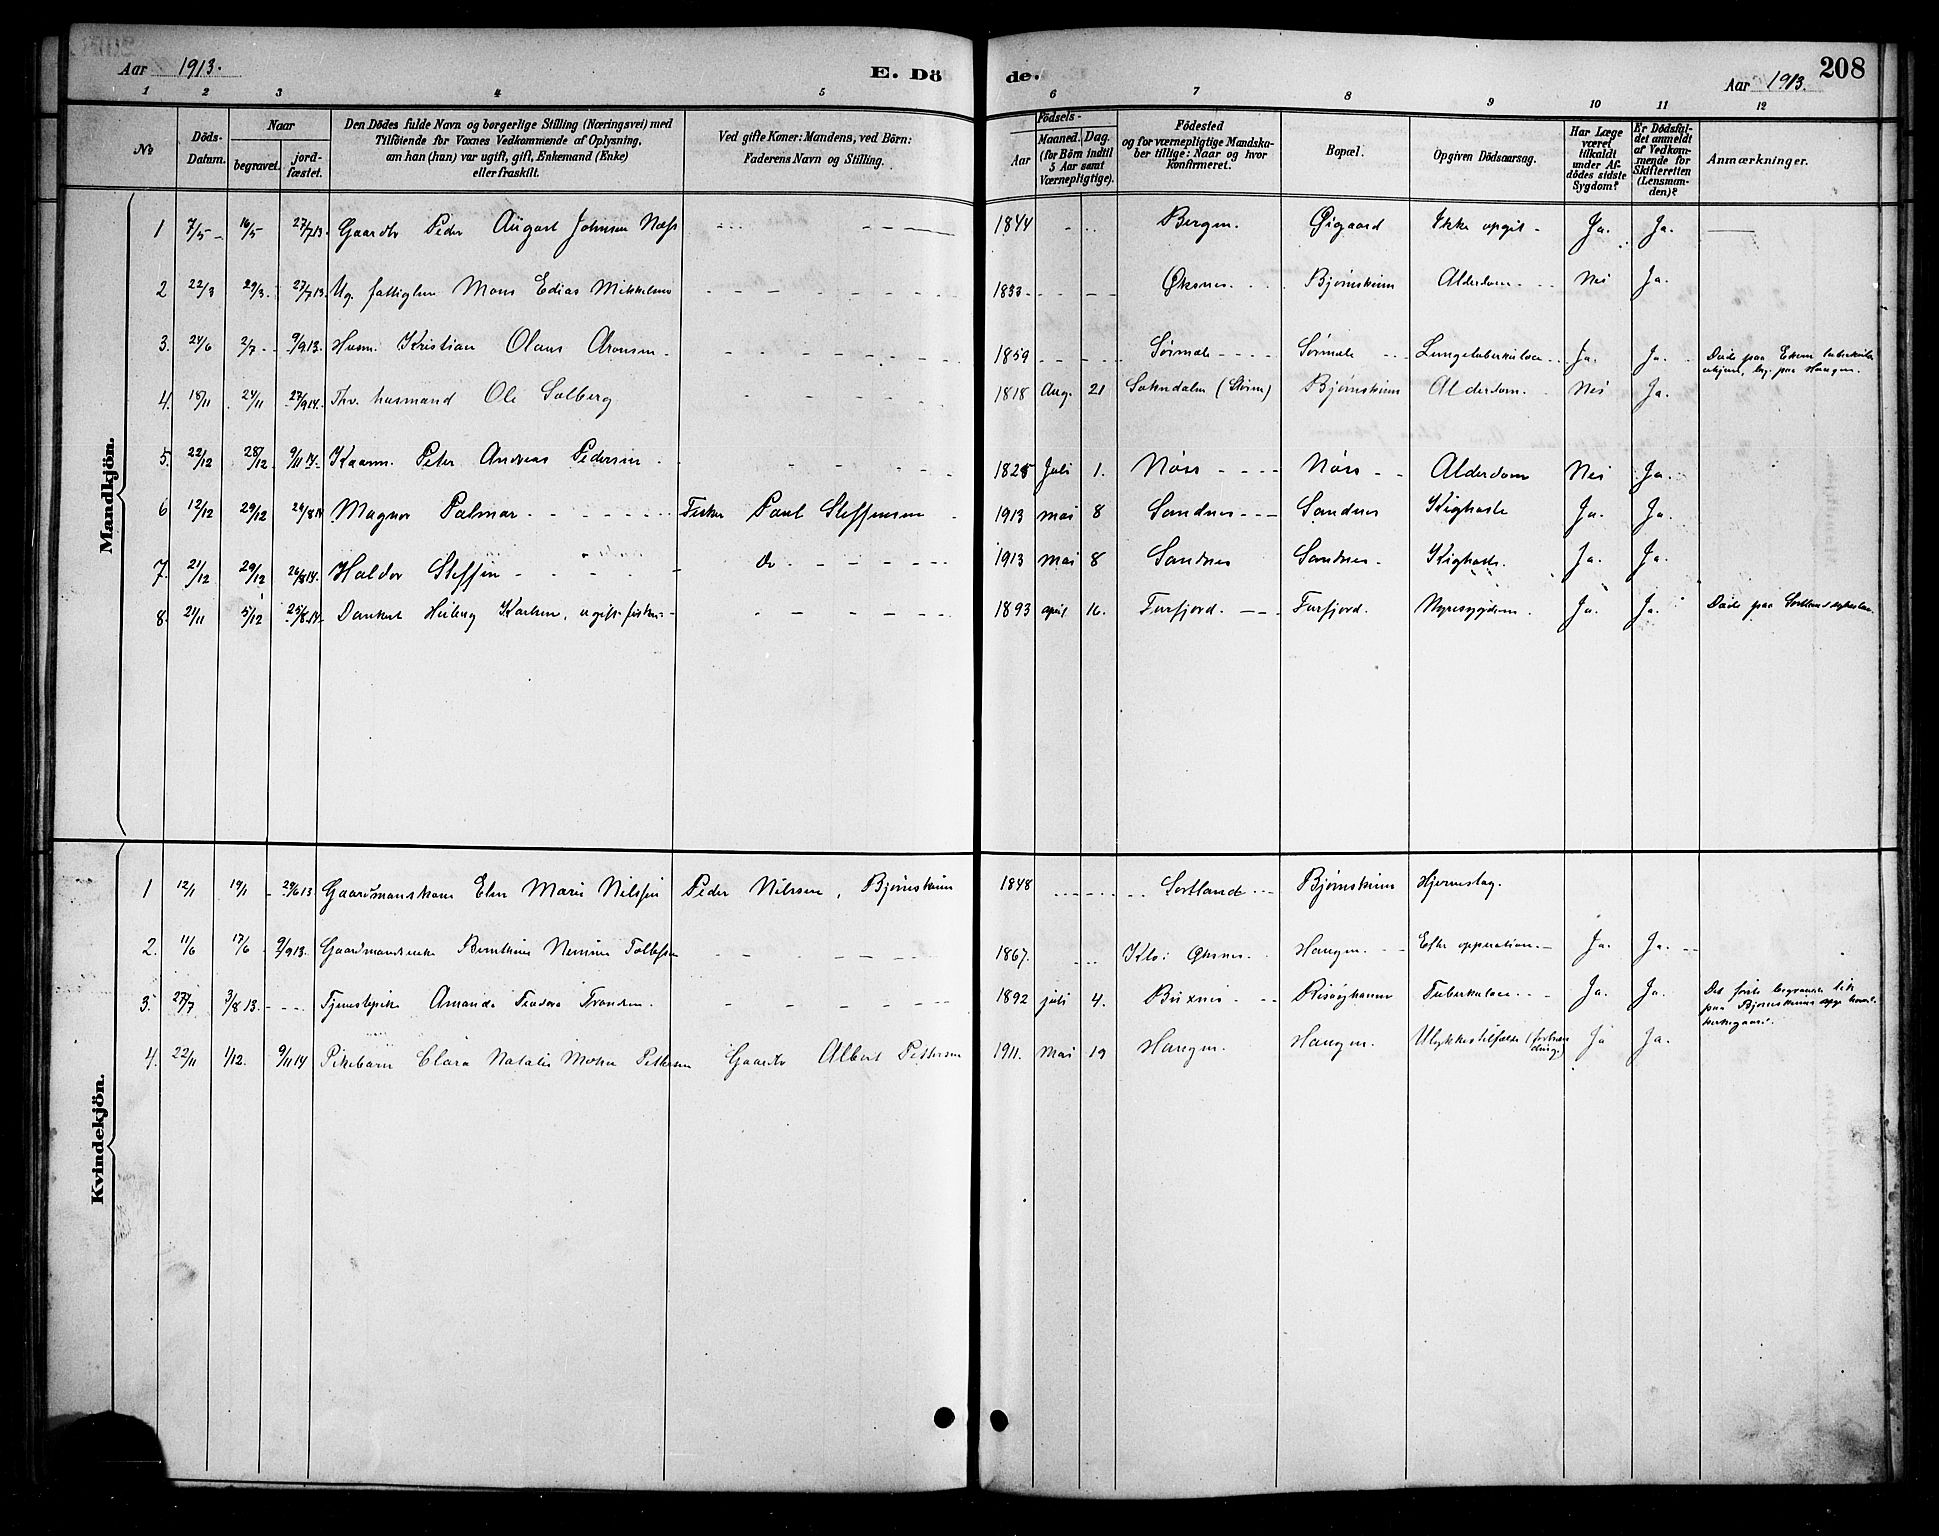 Aar 1913.
E. Dö
de.
Aar 1913.
208
1 2 3 4 5 6 7 8 9 10 11 12
No
Döds-Datum.
Naar
begravet.
jord-fæstet.
Den Dödes fulde Navn og borgerlige Stilling (Næringsvei) med
Tilföiende for Voxnes Vedkommende af Oplysning,
om han (hun) var ugift, gift, Enkemand (Enke)
eller fraskilt.
Ved gifte Koner: Mandens, ved Börn:
Faderens Navn og Stilling.
Födsels-
Aar
Maaned. Dag.
(for Börn indtil
5 Aar samt
Værnepligtige).
Födested
og for værnepligtige Mandska-
ber tillige: Naar og hvor
konfirmeret.
Bopæl.
Opgiven Dödsaarsag.
Har Læge
været
tilkaldt
under Af-
dödes sidste
Sygdom?
Er Dödsfal-
det anmeldt
af Vedkom-
mende for
Skifteretten
(Lensman-
den)?
Anmærkninger.
Mandkjön.
1 7/5 - 16/5 27/7 13. Gaardbr Peder August Johnsen Næss 1844 Bergen. Øigaard Ikke opgit - Ja. Ja.
2 22/3 29/3. 27/7 13. Ug. fattiglem Mons Edias Mikkelsen 1833 Øksnes. Bjørnskinn Alderdom Nei Ja.
3. 24/6 2/7 - 9/9 13. Husm. Kristian Olaus Aronsen 1859 Sørmela Sørmela Lungetuberkulose Ja. Ja. Døde paa
begr. paa Haugen.
4. 18/11 24/11 27/9 14. Fhv. husmand Ole Solberg 1818 Aug. 21 Sokndalen (Støren) Bjørnskinn Alderdom. Nei Ja.
5. 22/12 28/12 9/11 14. Kaarm. Peter Andreas Pedersen 1825 Juli 1. Nöss Nöss Alderdom Nei Ja.
6 12/12 29/12 26/8 14 Magnor Palmar Fisker Paul Steffensen 1913 mai 8 Sandnes Sandnes Kighoste Ja. Ja.
7. 21/12 29/12 26/8 14. Haldor Steffen do. 1913 mai 8 Sandnes Sandnes. Kighoste. Ja. Ja.
8. 21/11 5/12 25/8 14. Dankert Heiberg Karlsen, ugift fisker 1893 april 16. Forfjord. Forfjord. Nyresygdom. Ja. Ja. Døde paa Sortland sykehus.
Kvindekjön.
1 12/1 19/1 - 29/6 13 Gaardmanskone Elen Marie Nilssen Peder Nilssen, Bjørnskinn 1848 Sortland Bjørnskinn Hjerneslag.
2. 11/6 17/6 9/9 13. Gaardmandsenke Berntine Tollefsen 1867. Klo i Øksnes. Haugen. Efter opperation. Ja. Ja.
3. 27/7 3/8 13. Tjenestepike Amanda Teodora Trondsen. 1892 juli 4. Buxnes Risøyhamn Tuberkulose. Ja. Ja. Det første begravede lik
paa Bjørnskinns nye hoved
kirkegaard.
4. 22/11 1/12. 9/11 14 Pikebarn Clara Natalie Pettersen Gaardbr Albert Pettersen 1911. Mai 19 Haugen. Haugen. Ulykkestilfælde (forbræn
ding) Ja Ja.